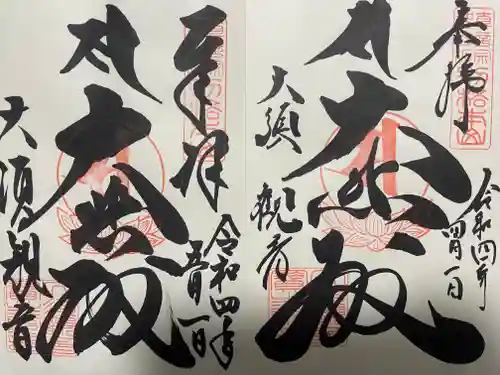 奉拝
大悲殿
大須観音
令和四年
四月一日
奉拝
大悲殿
大須観音
令和四年
五月一日